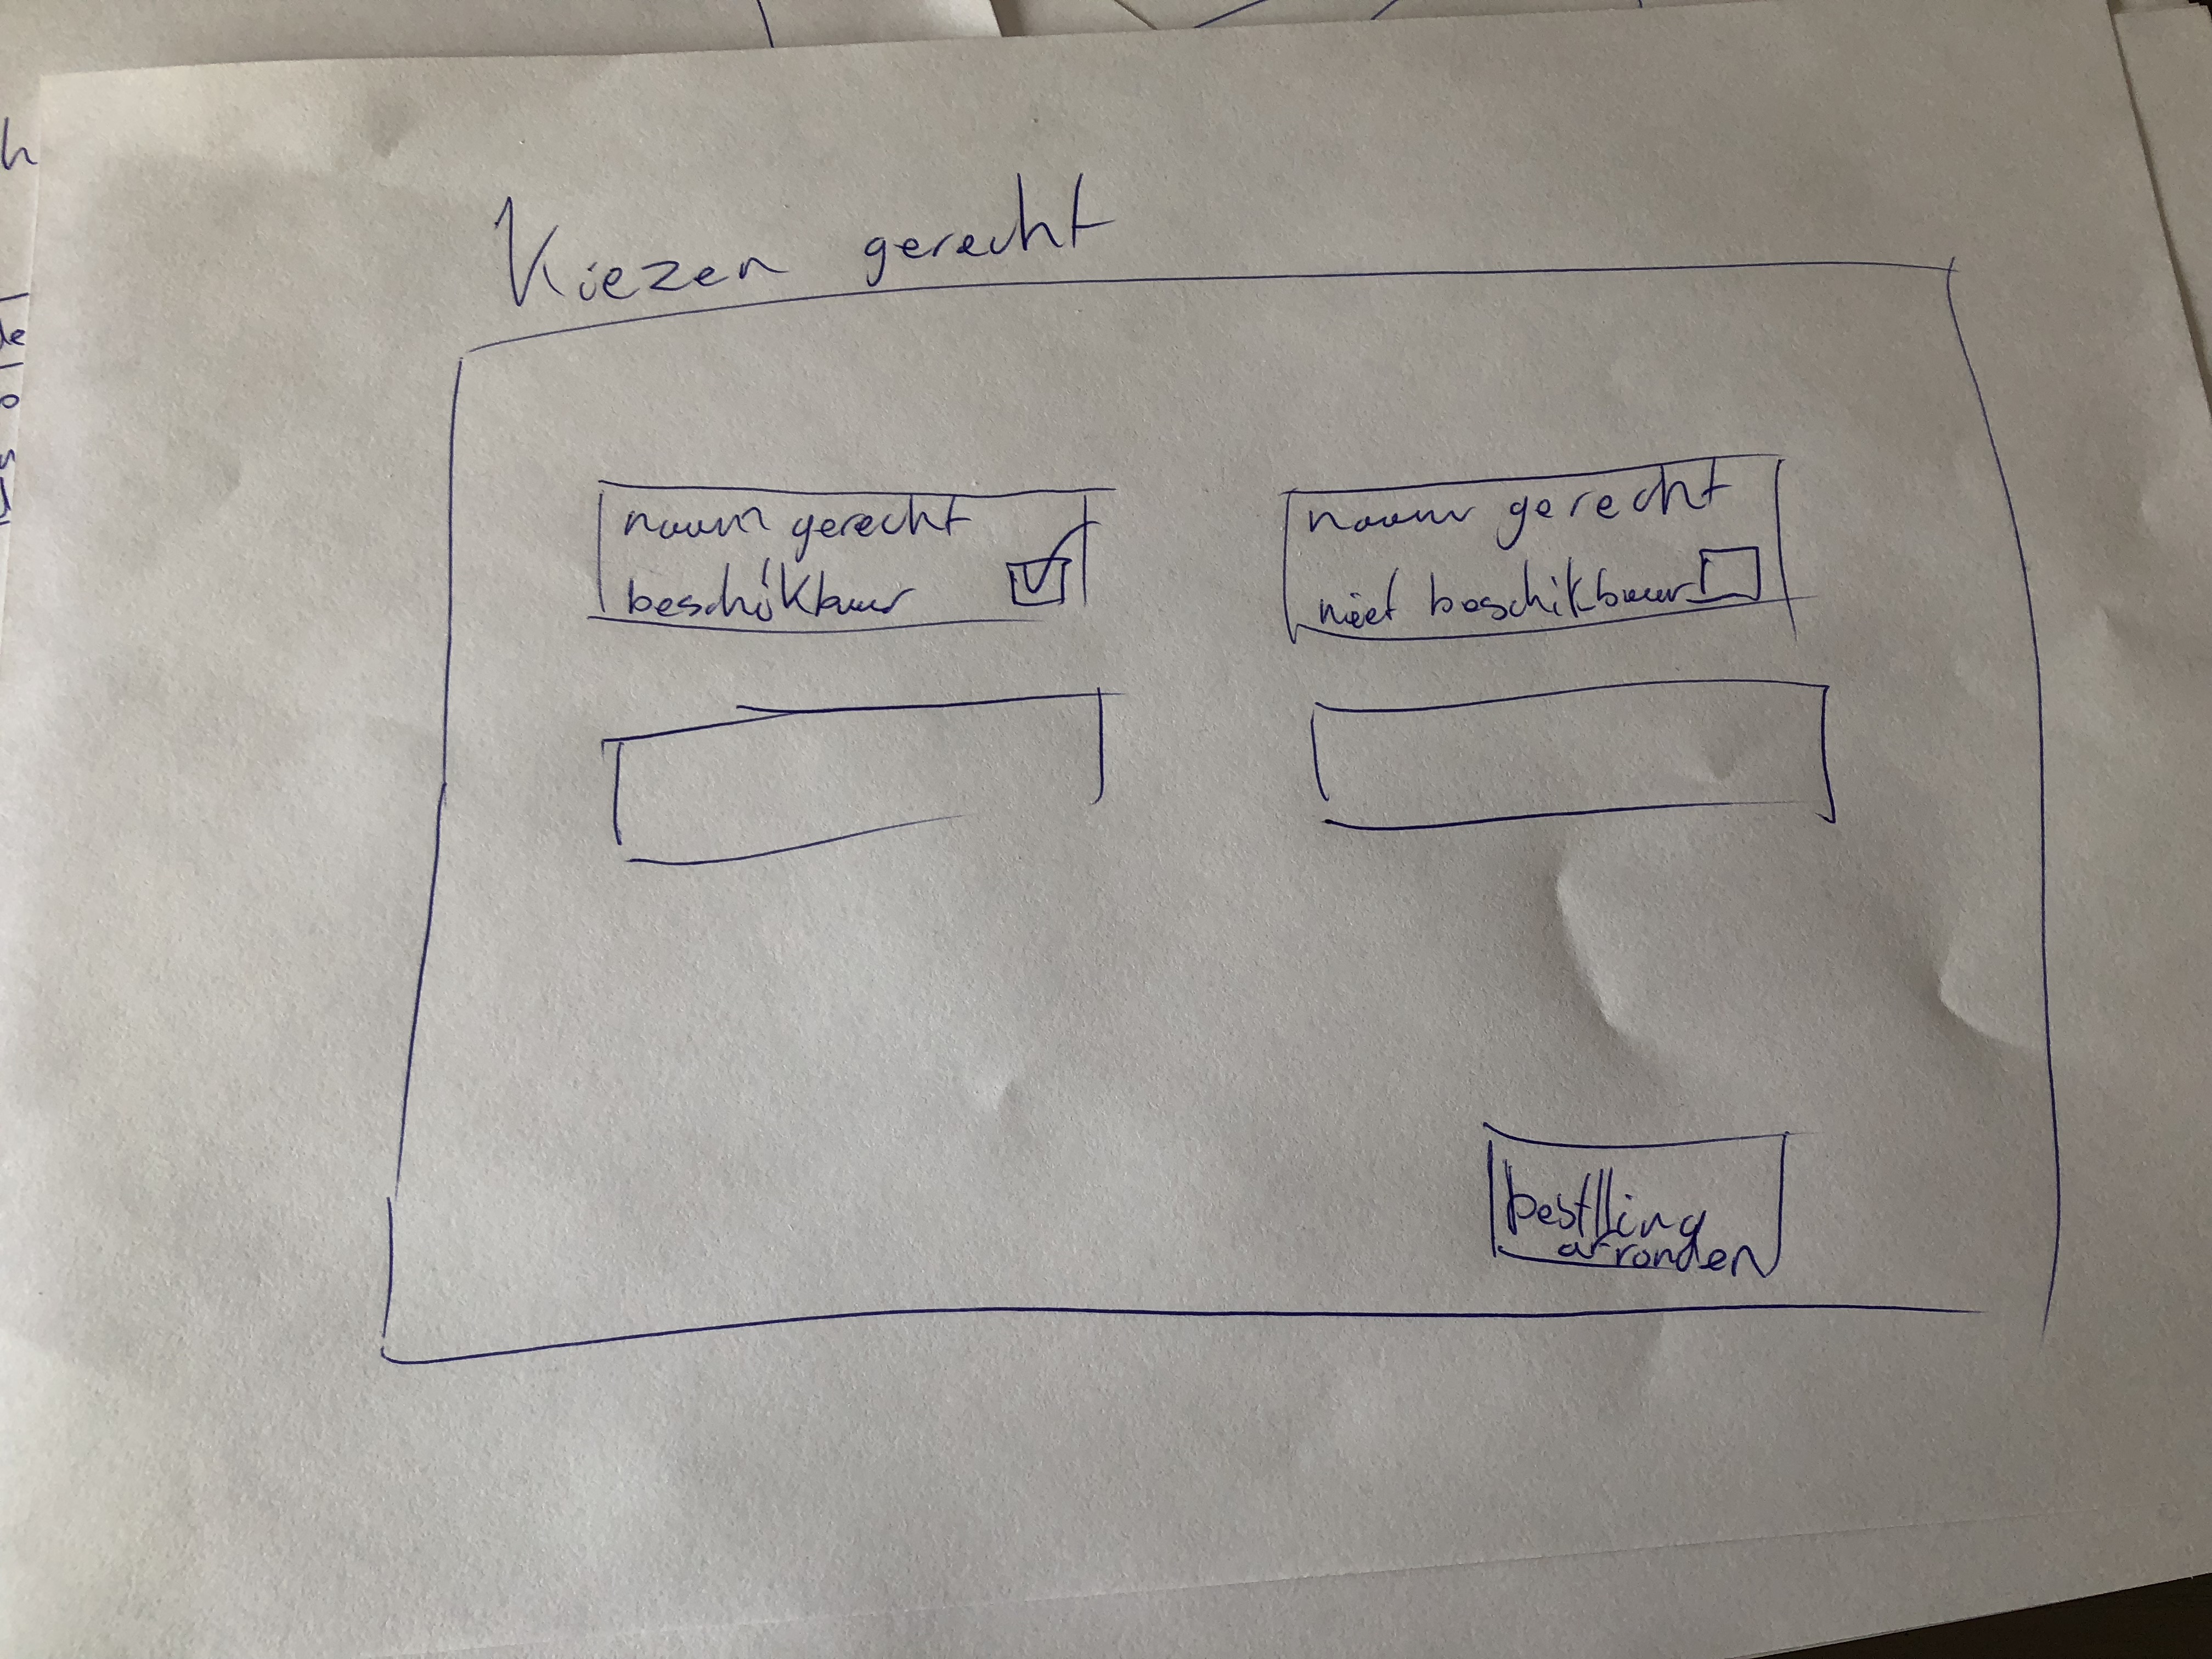 Kiezen gerecht
naam gerecht
beschikbaar
naam gerecht
niet beschikbaar
bestlling
afronden